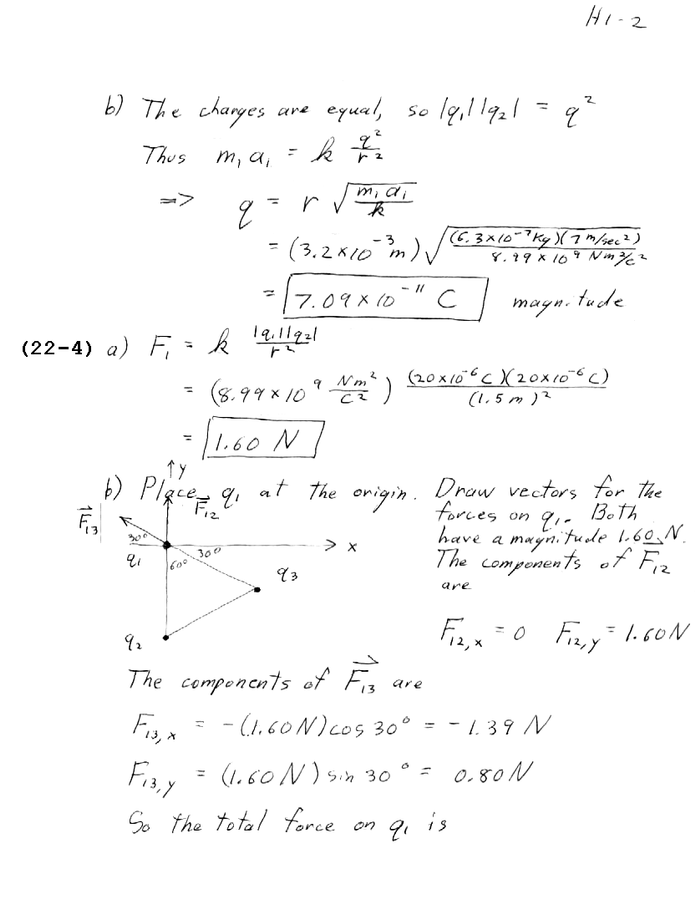 H1-2
b) The charges are equal, so |q₁||q₂| = q²
Thus m₁a₁ = k q²/r²
=> q = r √(m₁a₁/k)
= (3.2×10⁻³m) √((6.3×10⁻⁷Kg)(7 m/sec²)/(8.99×10⁹ Nm²/c²))
= 7.09×10⁻¹¹ C magnitude
(22-4) a) F₁ = k |q₁||q₂|/r²
= (8.99×10⁹ Nm²/C²) (20×10⁻⁶C)(20×10⁻⁶C)/(1.5m)²
= 1.60 N
b) Place q₁ at the origin. Draw vectors for the
forces on q₁. Both
have a magnitude 1.60 N.
The components of F⃗₁₂
are
y
F⃗₁₂
F⃗₁₃
30°
x
q₁
60°
30°
q₃
q₂
F₁₂,ₓ = 0 F₁₂,y = 1.60N
The components of F⃗₁₃ are
F₁₃,ₓ = -(1.60N)cos 30° = -1.39 N
F₁₃,y = (1.60N) sin 30° = 0.80N
So the total force on q₁ is